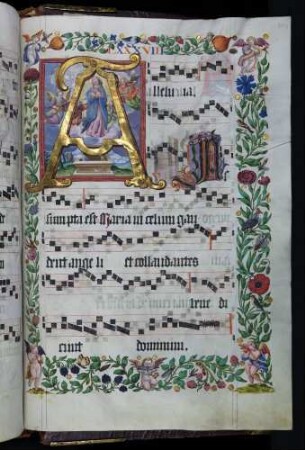 lleluia.
A
sumpta est Maria in celum gau
dent ange li et collaudantes
bene di
cunt dominum.